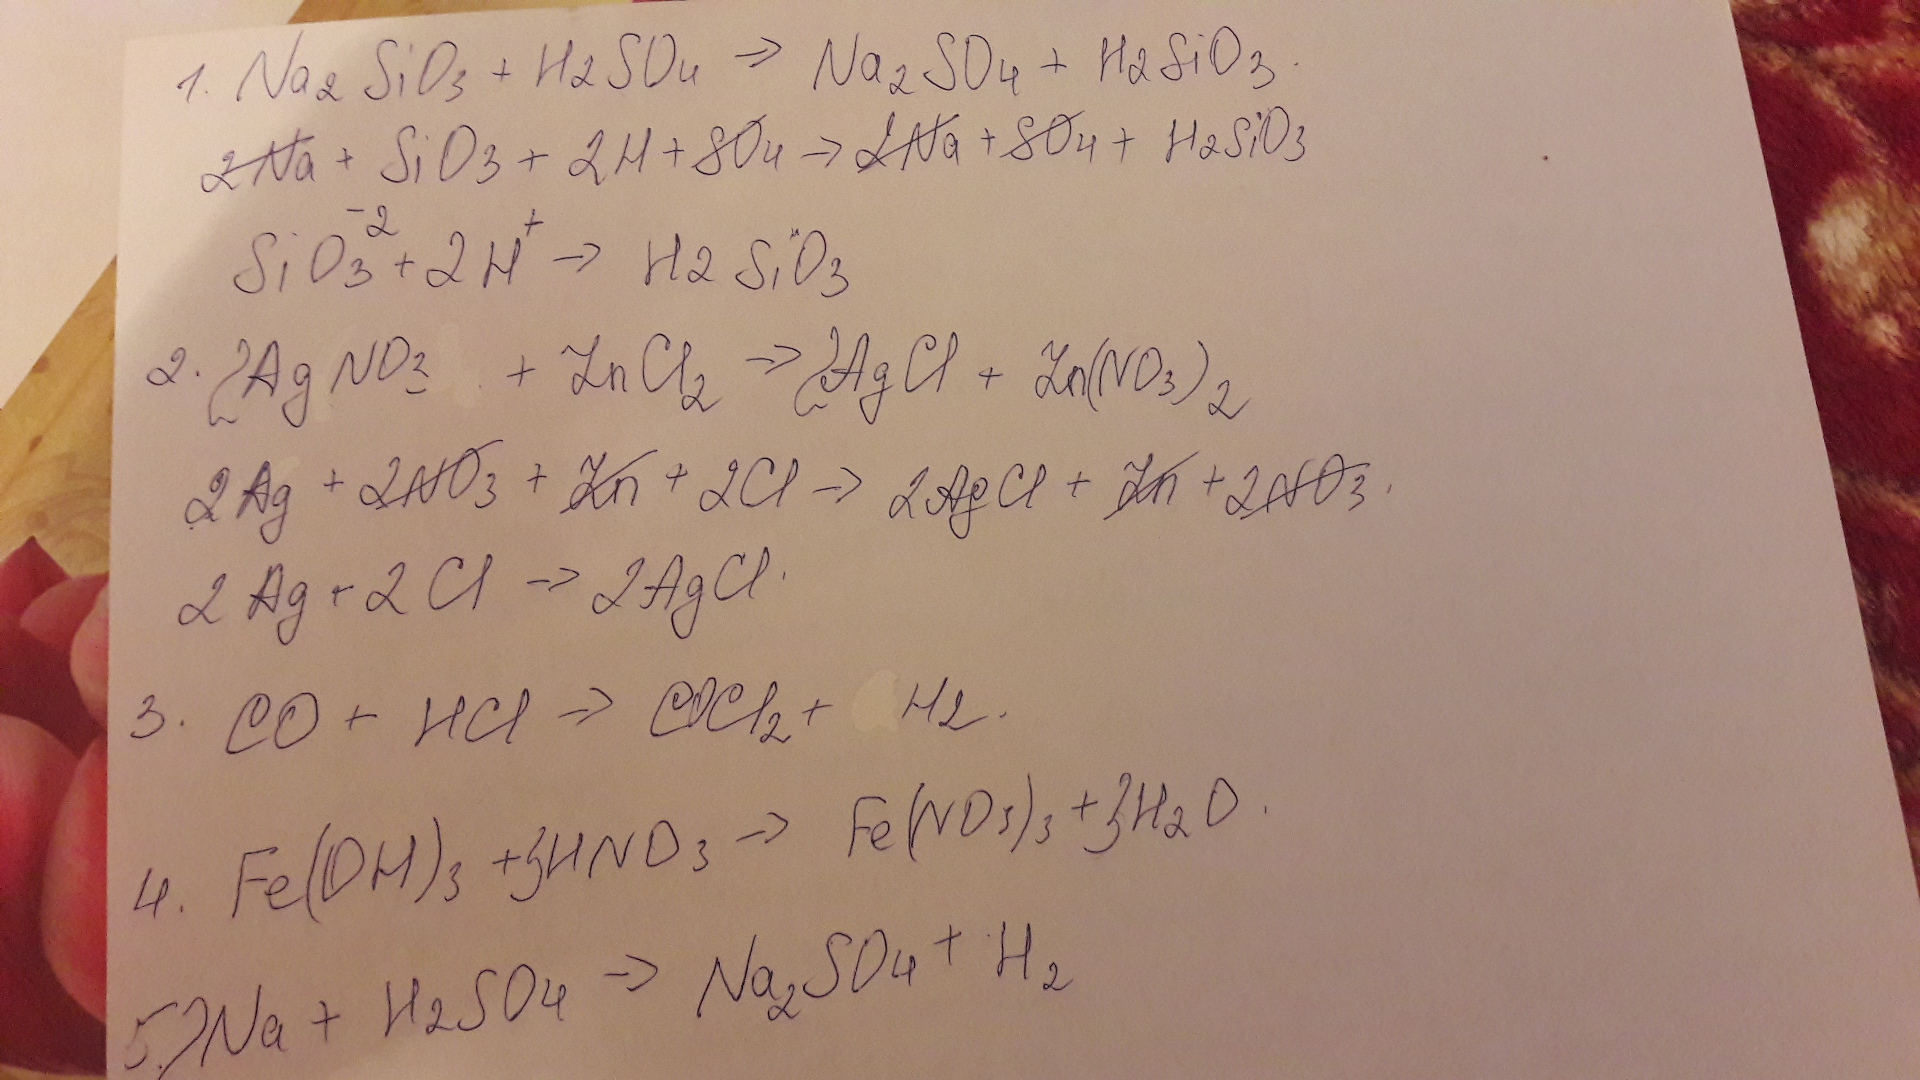 1. Na2SiO3 + H2SO4 → Na2SO4 + H2SiO3.
2Na + SiO3 + 2H + SO4 → 2Na + SO4 + H2SiO3
SiO3^-2 + 2H^+ → H2SiO3
2. 2AgNO3 + ZnCl2 → 2AgCl + Zn(NO3)2
2Ag + 2NO3 + Zn + 2Cl → 2AgCl + Zn + 2NO3.
2Ag + 2Cl → 2AgCl.
3. CO + HCl → COCl2 + H2.
4. Fe(OH)3 + 3HNO3 → Fe(NO3)3 + 3H2O.
5. 2Na + H2SO4 → Na2SO4 + H2